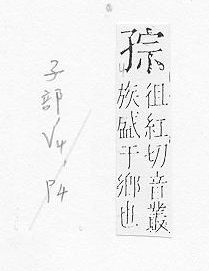 孮
徂紅切音叢
族盛于鄉也
子部 V4, P4